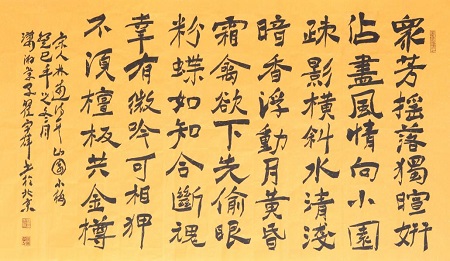 衆芳摇落獨暄妍
佔盡風情向小園
疎影橫斜水清淺
暗香浮動月黄昏
霜禽欲下先偷眼
粉蝶如知合斷魂
幸有微吟可相狎
不須檀板共金樽
宋人林逋詩山園小梅
癸巳年之五月
书於北京